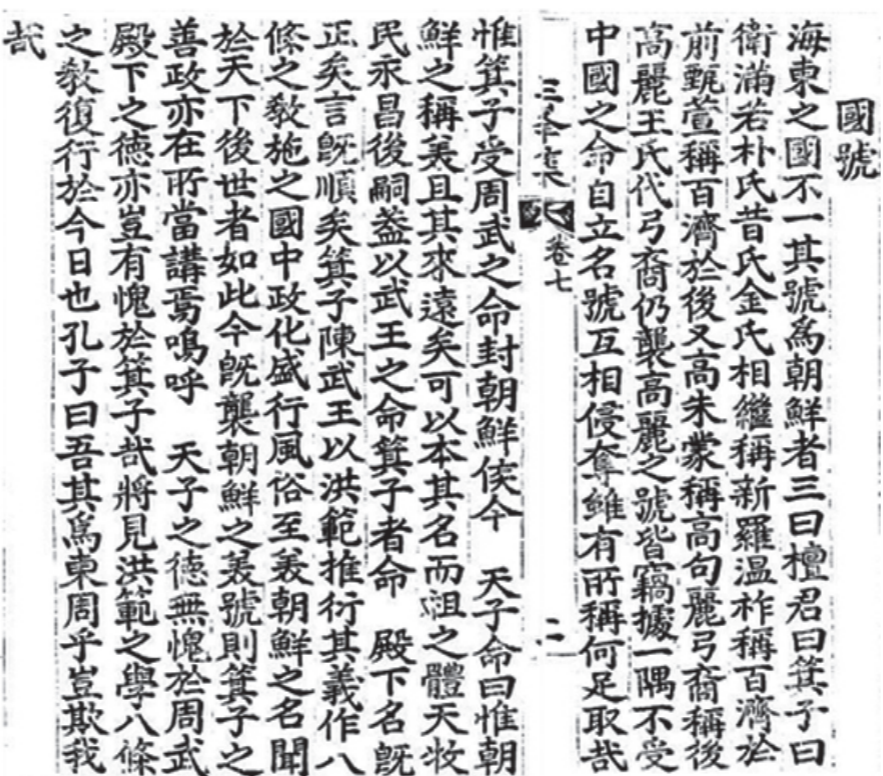 國號
海東之國不一其號爲朝鮮者三曰檀君曰箕子曰
衛滿若朴氏昔氏金氏相繼稱新羅温祚稱百濟於
前甄萱稱百濟於後又高朱蒙稱高句麗弓裔稱後
高麗王氏代弓裔仍襲高麗之號皆竊據一隅不受
中國之命自立名號互相侵奪雖有所稱何足取哉
三峯集 卷七 二
惟箕子受周武之命封朝鮮侯今 天子命曰惟朝
鮮之稱美且其來遠矣可以本其名而祖之體天牧
民永昌後嗣盖以武王之命箕子者命 殿下名旣
正矣言旣順矣箕子陳武王以洪範推衍其義作八
條之敎施之國中政化盛行風俗至美朝鮮之名聞
於天下後世者如此今旣襲朝鮮之美號則箕子之
善政亦在所當講焉嗚呼 天子之德無愧於周武
殿下之德亦豈有愧於箕子哉將見洪範之學八條
之敎復行於今日也孔子曰吾其爲東周乎豈欺我
哉